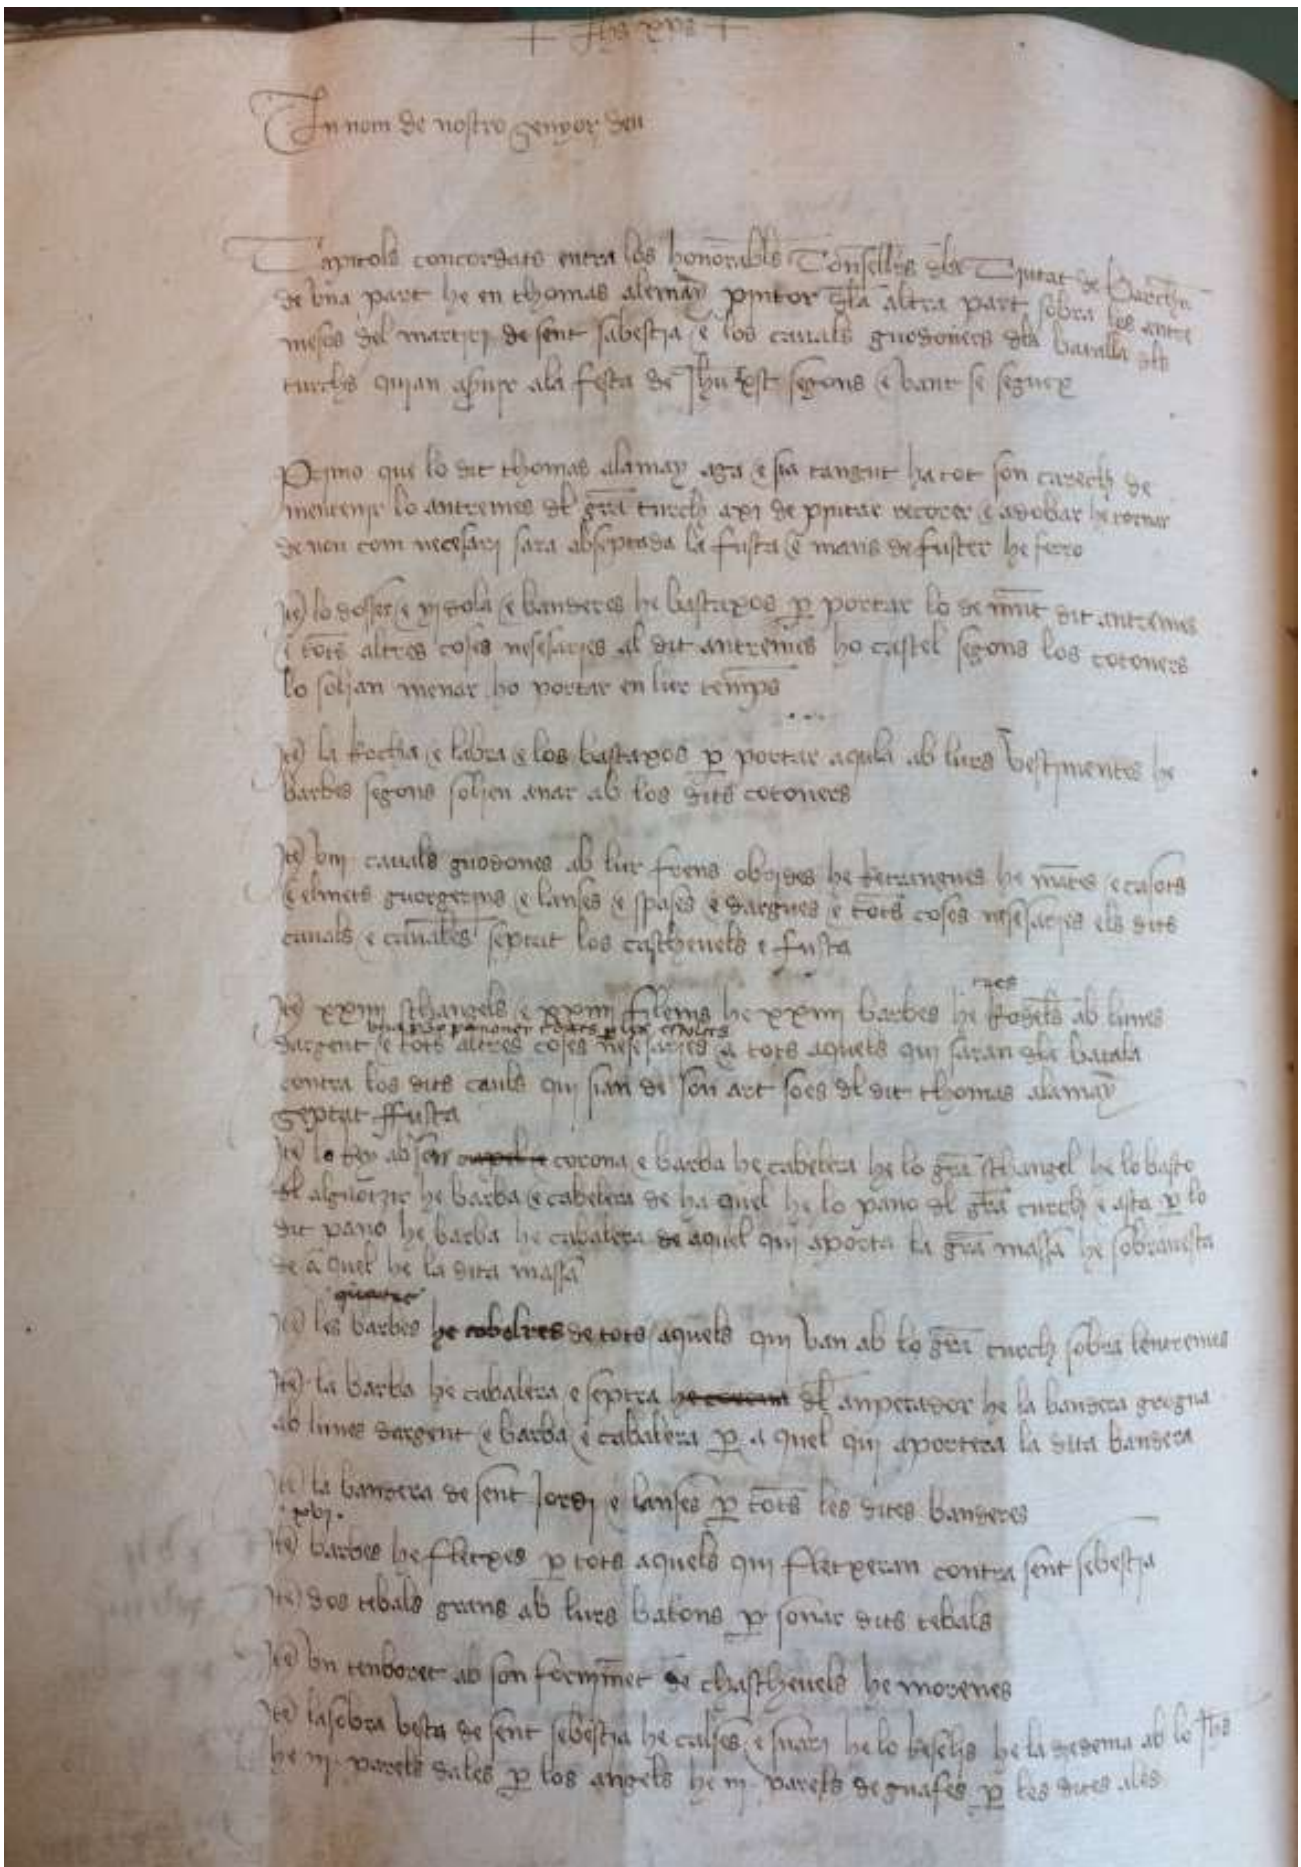 + Jhs xps +
In nom de nostro senyor deu
Capitols concordats entra los honorabls Consellrs dla Ciutat de Barchna
de vna part he en thomas alemany pintor dla altra part sobra los antre
mesos del martiri de sent sabestia e los cauals guodoners dla batalla dls
turchs quian aseuir ala festa de Jhu xst segons e vant se seguex
Primo que lo dit thomas alamay aga e sia tangut ha tot son carech de
mentenir lo antremes dl gra turch axi de pintar recorer e adobar he tornar
de nou com necesari sara abseptada la fusta e mans de fuster he ferro
Ite lo dosser e ydola e banderes he bastaxos p portar lo dit antremes
e tots altres coses nesesaries al dit antremes ho castel segons los cotoners
lo solian menar ho portar en lur temps
Ite la Rocha e labra e los bastaxos p portar aquela ab lurs vestimentes he
barbes segons solien anar ab los dits cotoners
Ite viii cauals guodones ab lur frens obrides he Retrangues he mates e casots
e elmets guorgerins e lanses e spases e dargues e tots coses nesesaries els dits
cauals e caualés septat los casthevels e fusta
tres
Ite xxiiii sthangels e xxiiii filems he xxiiii barbes he Rodels ab lunes
dargent e tots altres coses nesesaries a tots aquels qui saran dla batala
contra los dits cauls qui sian de son art soes dl dit thomas alamay
septat ffusta
Ite lo Rey ab son corona e barba he cabelera he lo gra sthangel he lo basto
dl alguotzir he barba e cabelera de ha quel he lo pano dl gra turch e asta p lo
dit pano he barba he cabalera de aquel qui aporta la gra massa he sobrauesta
de a quel he la dita massa
quatre
Ite les barbes he cobelres de tots aquels qui van ab lo gra turch sobra lentremes
Ite la barba he cabalera e septra he corona dl anperador he la bandera grogua
ab lunes dargent e barba e cabalera p a quel qui aportera la dita bandera
Ite la bandera de sent Jordi e lanses p tots les dites banderes
xvi.
Ite barbes he fletxes p tots aquels qui fletxeran contra sent sebestia
Ite dos tebals grans ab lurs batons p sonar dits tebals
Ite vn tenboret ab son forniment de chasthevels he morenes
Ite la sobra vesta de sent sebestia he calses e suari he lo beselis he la dedema ab lo Jhs
he iii parels dales p los angels he iii parels de guafes p les dites ales